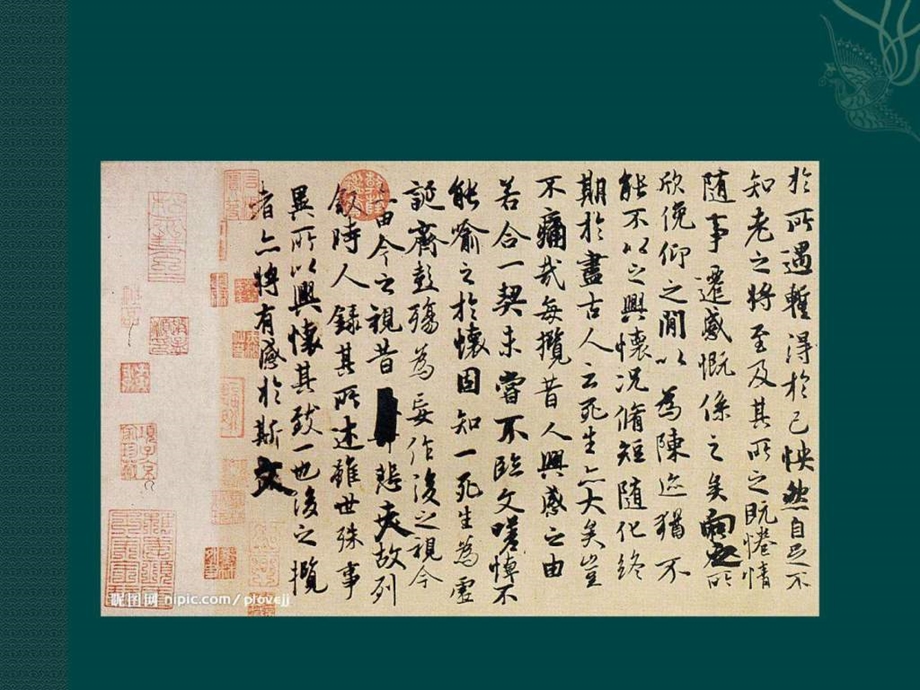 於所遇暫得於己怏然自足不
知老之將至及其所之既惓情
隨事遷感慨係之矣向之所
欣俛仰之閒以為陳迹猶不
能不以之興懷況脩短隨化終
期於盡古人云死生亦大矣豈
不痛哉每攬昔人興感之由
若合一契未嘗不臨文嗟悼不
能喻之於懷固知一死生為虛
誕齊彭殤為妄作後之視今
亦由今之視昔悲夫故列
敘時人錄其所述雖世殊事
異所以興懷其致一也後之攬
者亦將有感於斯文
昵图网 nipic.com/plovejj